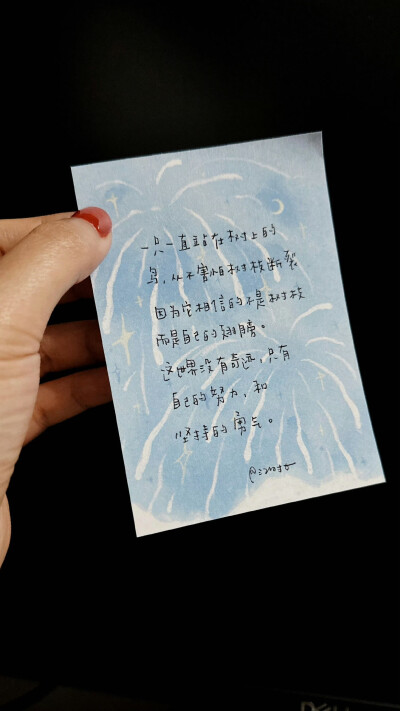 一只一直站在树上的
鸟，从不害怕树枝断裂
因为它相信的不是树枝
而是自己的翅膀。
这世界没有奇迹，只有
自己的努力，和
坚持的勇气。